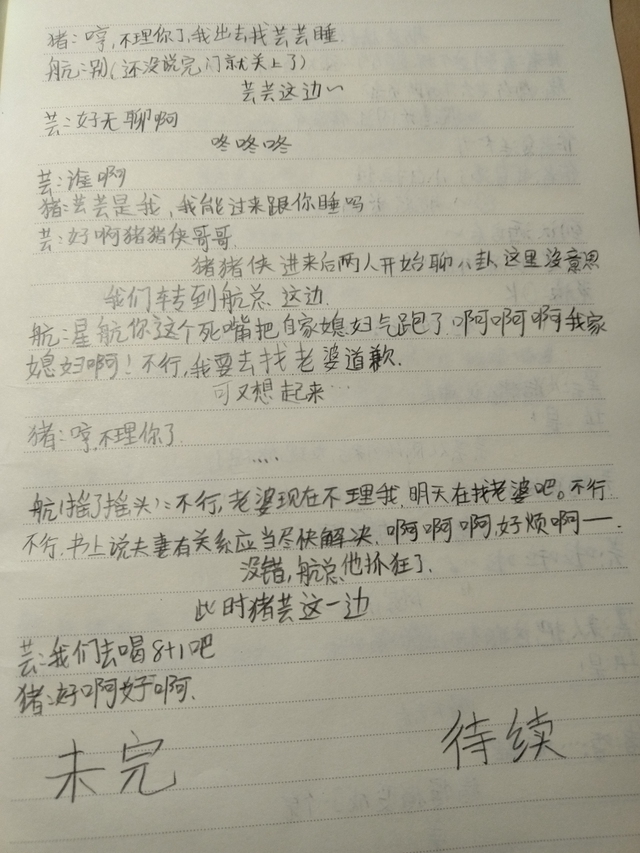 猪:哼,不理你了,我出去找芸芸睡.
航:别(还没说完门就关上了)
芸芸这边~
芸:好无聊啊
咚咚咚
芸:谁啊
猪:芸芸是我,我能过来跟你睡吗
芸:好啊猪猪侠哥哥.
猪猪侠进来后两人开始聊八卦,这里没意思
我们转到航总这边.
航:星航你这个死嘴把自家媳妇气跑了.啊啊啊我家
媳妇啊!不行,我要去找老婆道歉.
可又想起来…
猪:哼,不理你了
....
航(摇了摇头):不行,老婆现在不理我,明天在找老婆吧。不行
不行.书上说夫妻有关系应当尽快解决.啊啊啊,好烦啊——.
没错,航总他抓狂了.
此时猪芸这一边
芸:我们去喝8+1吧
猪:好啊好啊.
未完 待续